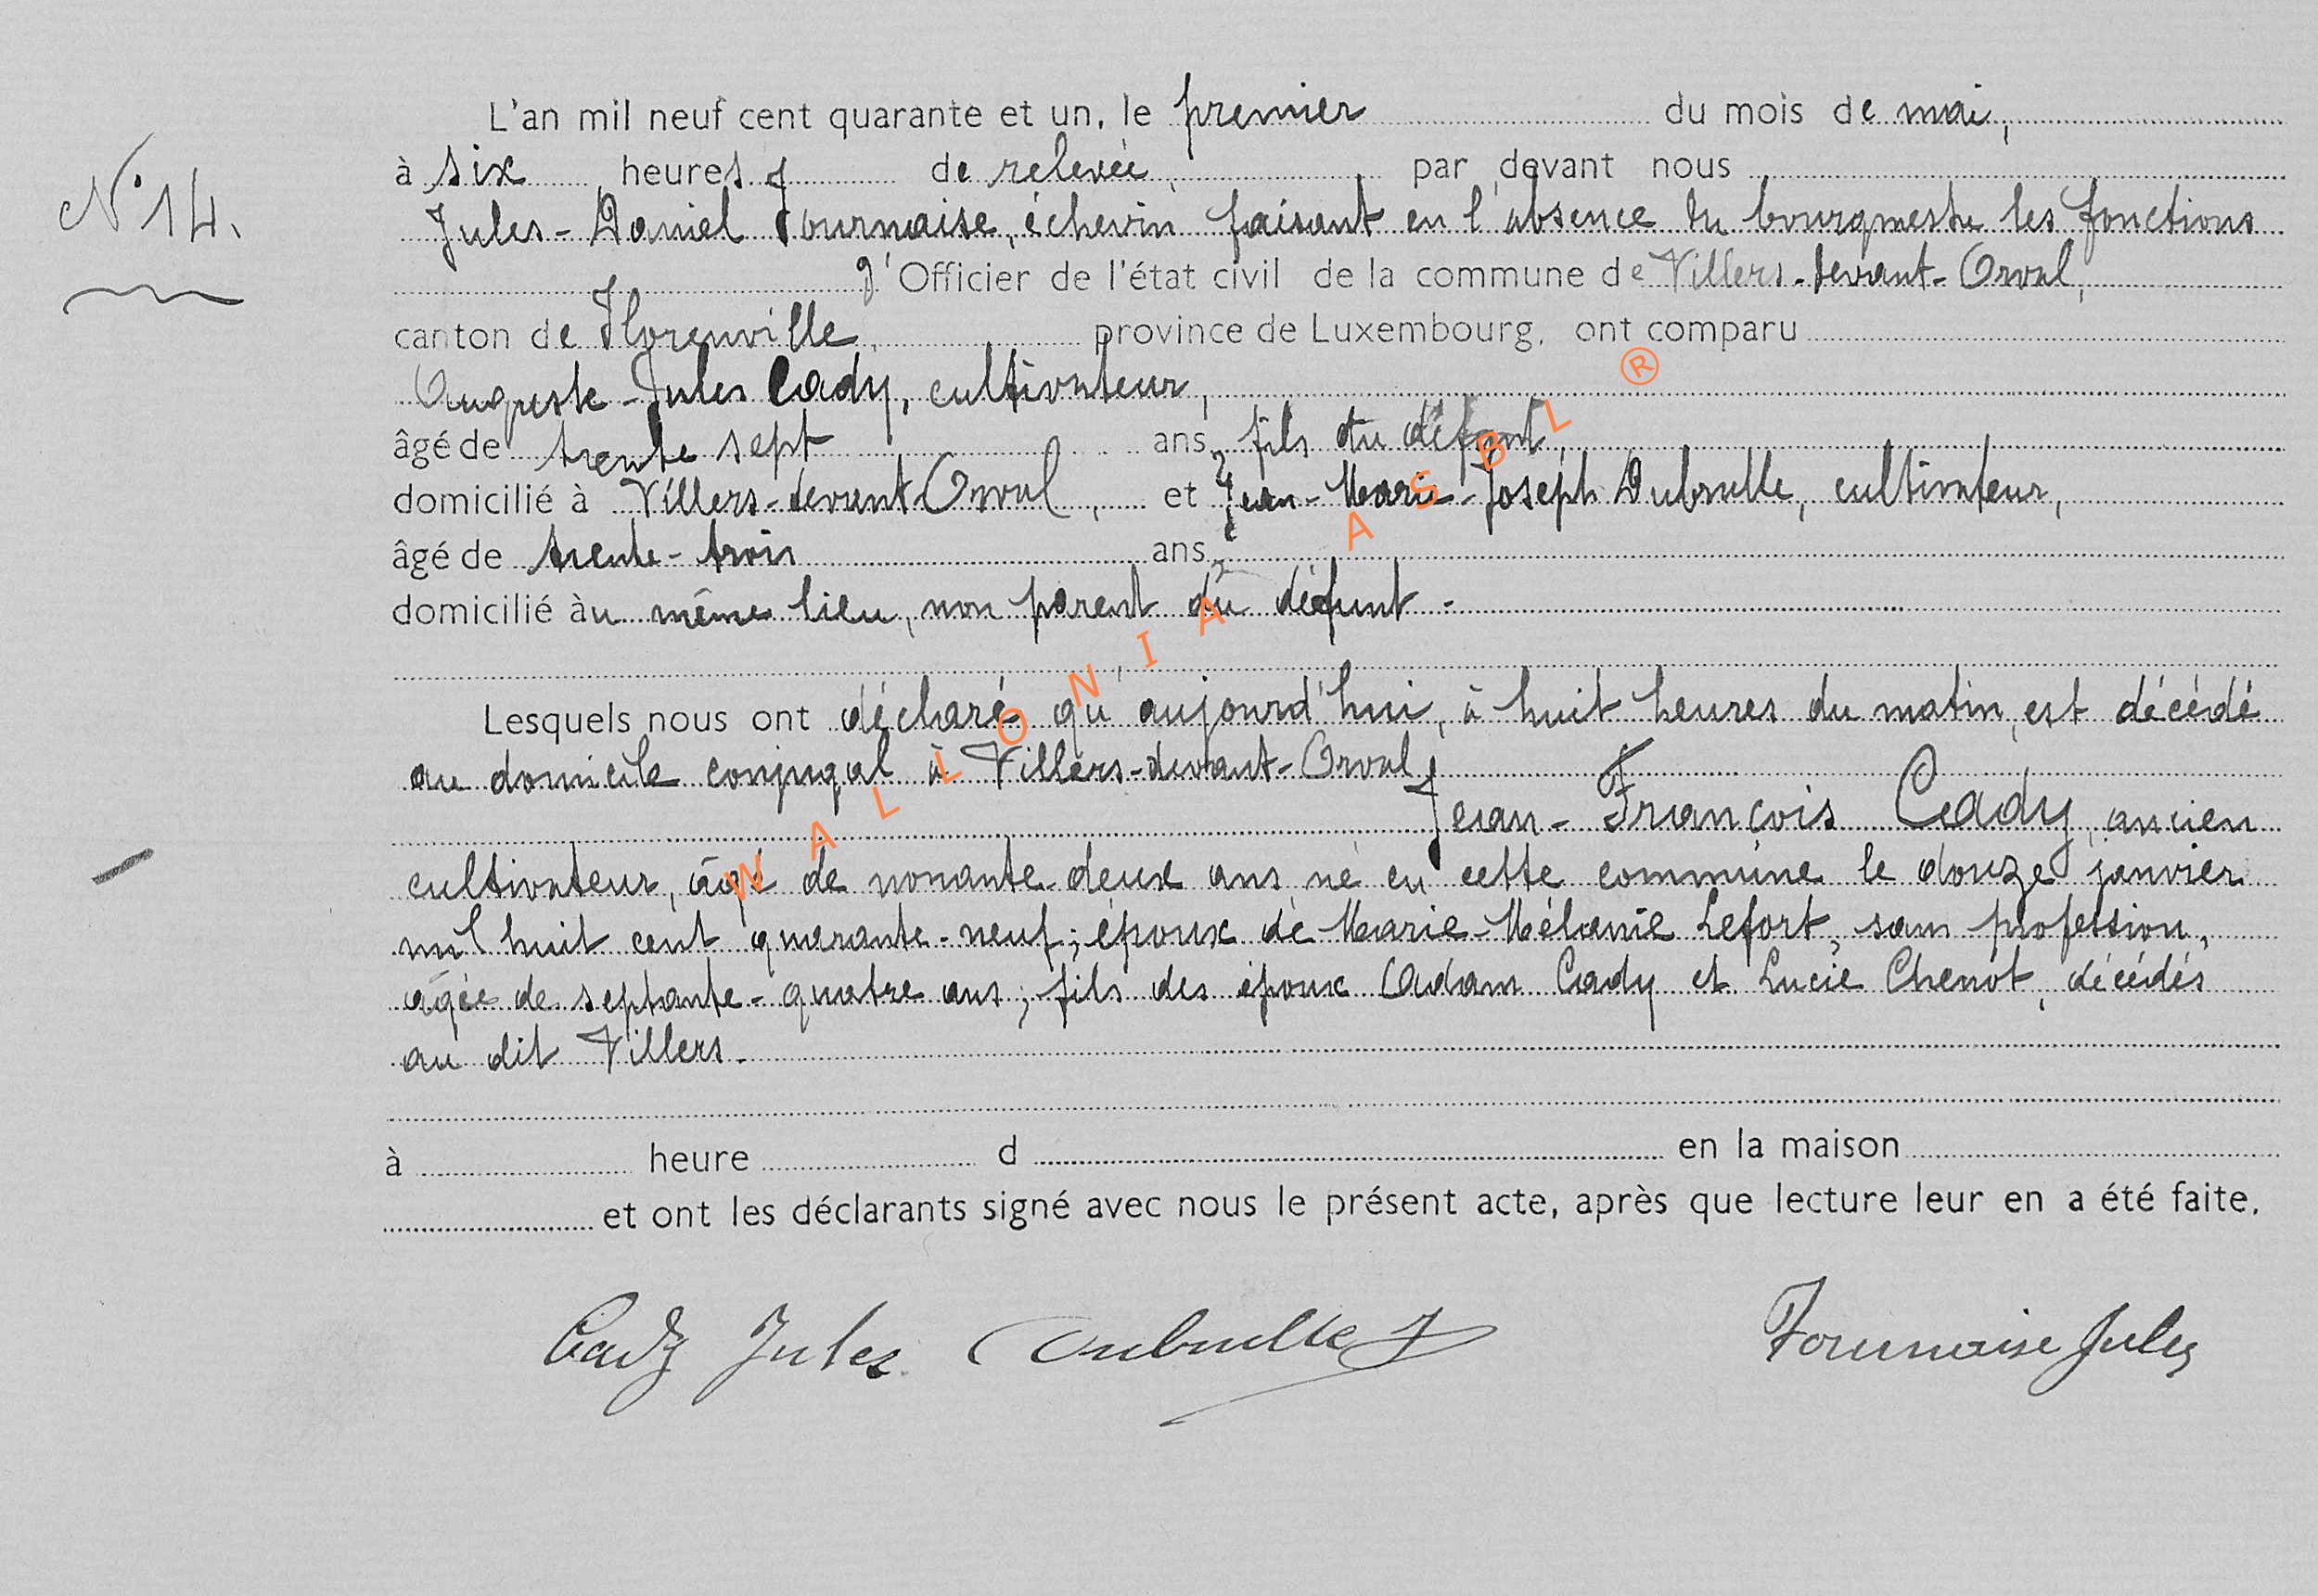 N° 14.
L'an mil neuf cent quarante et un, le premier du mois de mai,
à six heures de relevée, par devant nous
Jules-Daniel Fournaise, échevin faisant en l'absence du bourgmestre les fonctions
d'Officier de l'état civil de la commune de Villers-devant-Orval,
canton de Florenville, province de Luxembourg, ont comparu
Auguste-Jules Cady, cultivateur,
âgé de trente sept ans, fils du défunt,
domicilié à Villers-devant-Orval, et Jean-Marie-Joseph Dubrulle, cultivateur,
âgé de trente-trois ans,
domicilié au même lieu, non parent du défunt.
Lesquels nous ont déclaré qu'aujourd'hui, à huit heures du matin, est décédé
au domicile conjugal à Villers-devant-Orval,
Jean-François Cady, ancien
cultivateur, âgé de nonante-deux ans né en cette commune le douze janvier
mil huit cent quarante-neuf; époux de Marie-Mélanie Lefort, sans profession,
agée de septante-quatre ans; fils des époux Adam Cady et Lucie Chenot, décédés
au dit Villers.
à heure d en la maison
et ont les déclarants signé avec nous le présent acte, après que lecture leur en a été faite.
Cady Jules. Dubrulle J Fournaise Jules
WALLONIA ASBL ®